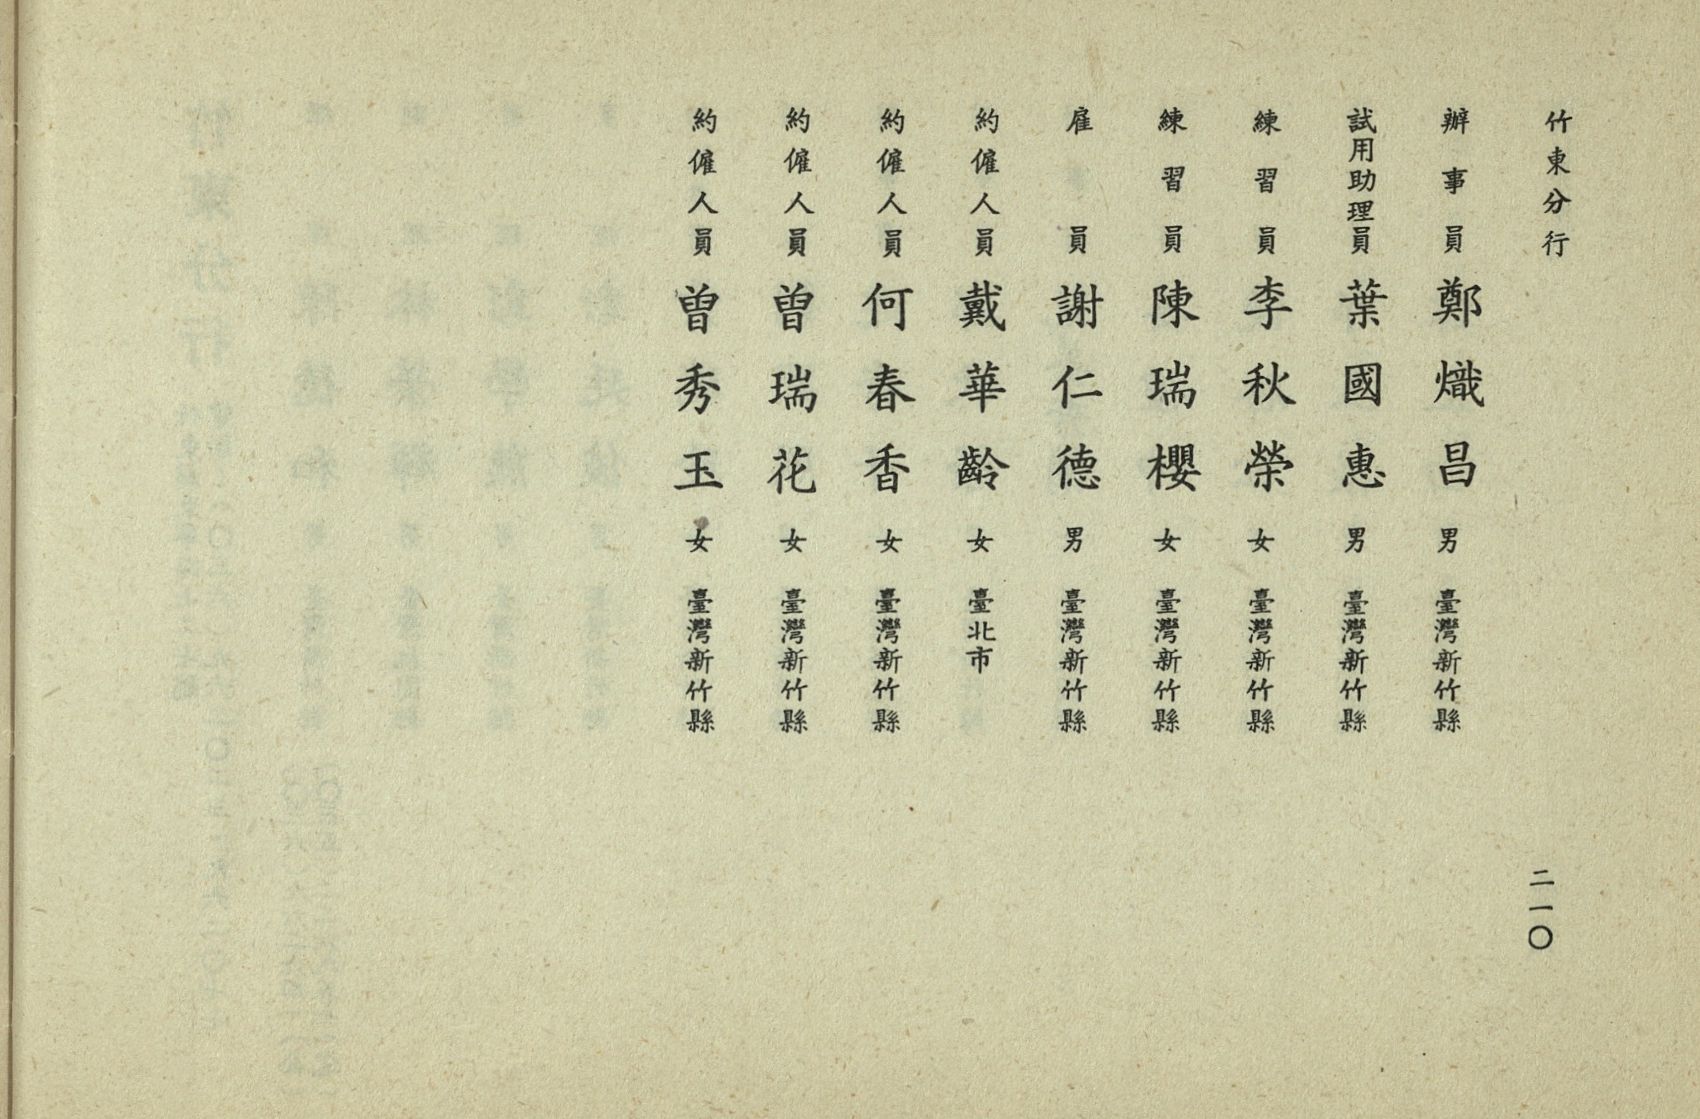 竹東分行
辦事員 鄭熾昌 男 臺灣新竹縣
試用助理員 葉國惠 男 臺灣新竹縣
練習員 李秋榮 女 臺灣新竹縣
練習員 陳瑞櫻 女 臺灣新竹縣
雇員 謝仁德 男 臺灣新竹縣
約僱人員 戴華齡 女 臺北市
約僱人員 何春香 女 臺灣新竹縣
約僱人員 曾瑞花 女 臺灣新竹縣
約僱人員 曾秀玉 女 臺灣新竹縣
二一〇